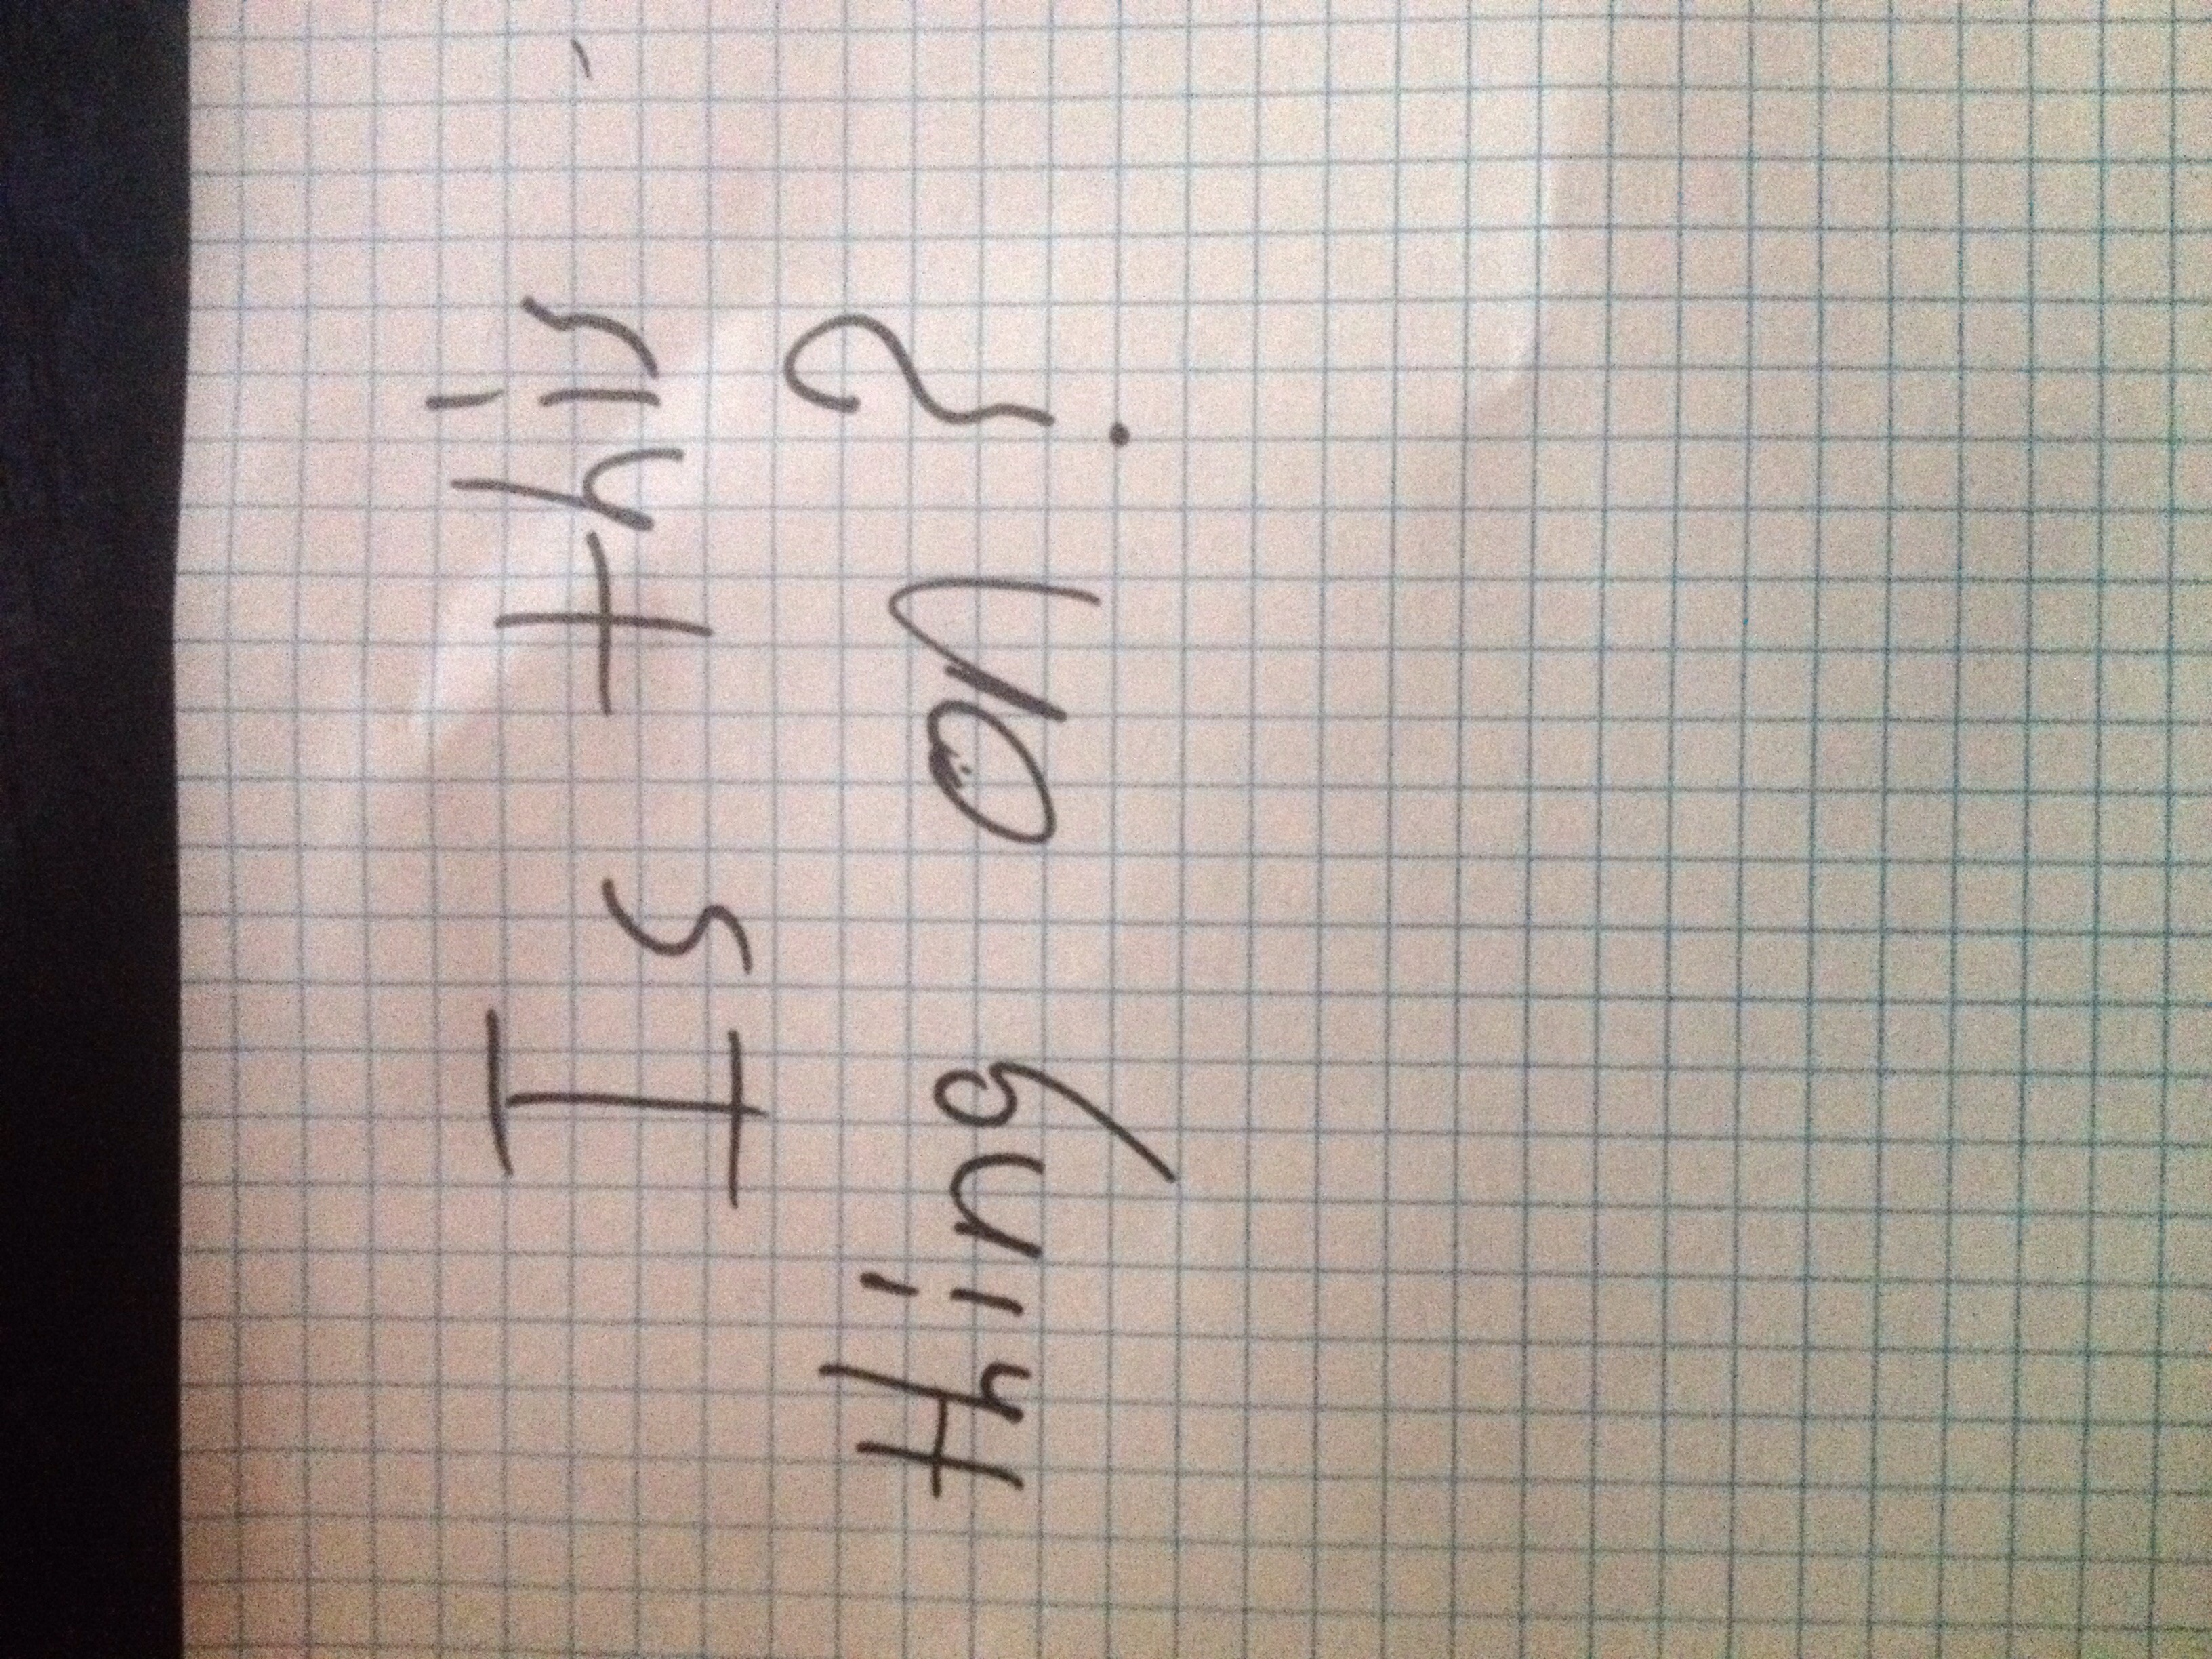 Is this
thing on?